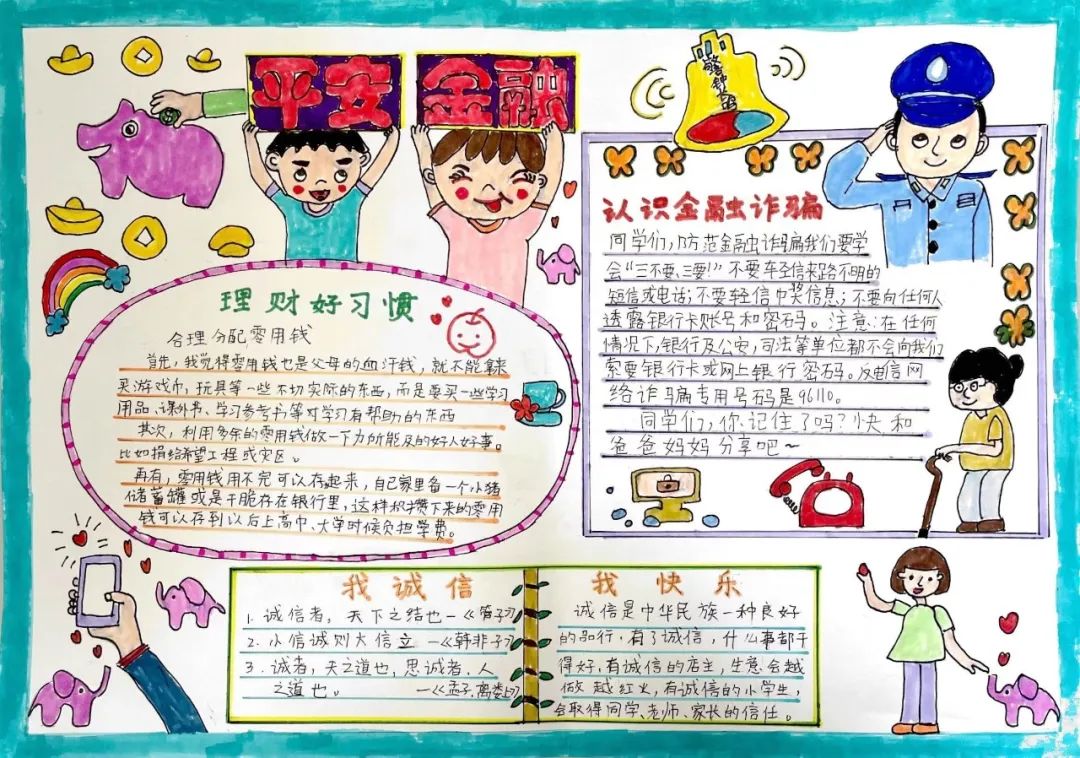 平安
金融
警钟
理财好习惯
合理分配零用钱
首先，我觉得零用钱也是父母的血汗钱，就不能拿来
买游戏币，玩具等一些不切实际的东西，而是要买一些学习
用品、课外书、学习参考书等对学习有帮助的东西
其次，利用多余的零用钱做一下力所能及的好人好事。
比如捐给希望工程或灾区。
再有，零用钱用不完可以存起来，自己家里备一个小猪
储蓄罐或是干脆存在银行里，这样积攒下来的零用
钱可以存到以后上高中、大学时候负担学费。
认识金融诈骗
同学们，防范金融诈骗我们要学
会“三不要、三要!”不要轻信来路不明的
短信或电话；不要轻信中奖信息；不要向任何人
透露银行卡账号和密码。注意：在任何
情况下，银行及公安，司法等单位都不会向我们
索要银行卡或网上银行密码。反电信网
络诈骗专用号码是96110。
同学们，你记住了吗？快和
爸爸妈妈分享吧～
我诚信
1. 诚信者，天下之结也—《管子》
2. 小信诚则大信立 —《韩非子》
3. 诚者，天之道也，思诚者，人
之道也。 —《孟子，离娄上》
我快乐
诚信是中华民族一种良好
的品行，有了诚信，什么事都干
得好，有诚信的店主，生意会越
做越红火，有诚信的小学生，
会取得同学、老师、家长的信任。